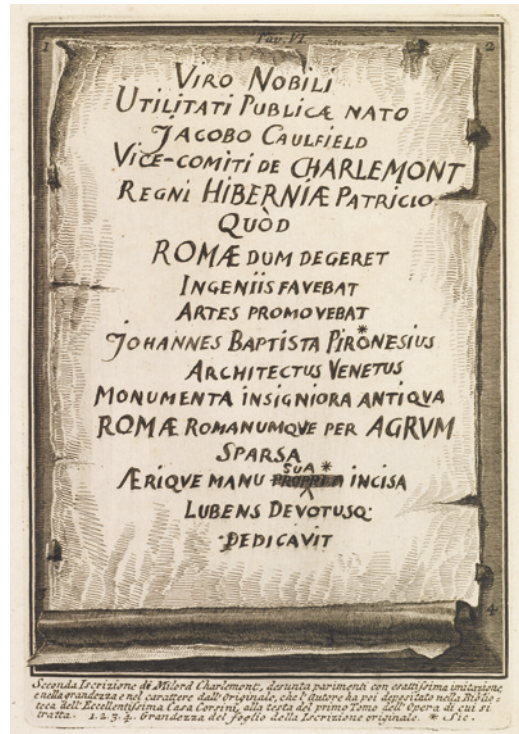 Tav. VI.
1 2
VIRO NOBILI
UTILITATI PUBLICÆ NATO
JACOBO CAULFIELD
VICE-COMITI DE CHARLEMONT
REGNI HIBERNIÆ PATRICIO
QUÒD
ROMÆ DUM DEGERET
INGENIIS FAVEBAT
ARTES PROMOVEBAT
JOHANNES BAPTISTA PIRONESIUS *
ARCHITECTUS VENETUS
MONUMENTA INSIGNIORA ANTIQVA
ROMÆ ROMANUMQVE PER AGRVM
SPARSA
SUA *
ÆRIQVE MANU PROPRIA INCISA
LUBENS DEVOTUSQ·
·DEDICAVIT
4
Seconda Iscrizione di Milord Charlemont, desunta parimenti con esattissima imitazione,
e nella grandezza e nel carattere dall'originale, che l'Autore ha poi depositato nella Biblio-
teca dell'Eccellentissima Casa Corsini, alla testa del primo Tomo dell'Opera di cui si
tratta. 1. 2. 3. 4. Grandezza del foglio della Iscrizione originale. * Sic.